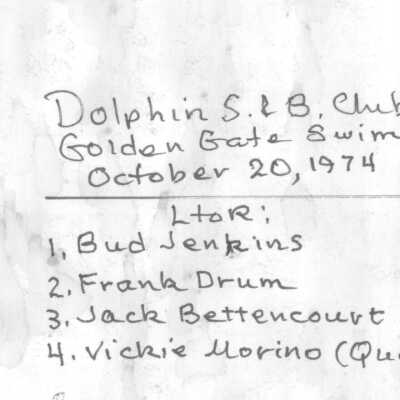 Dolphin S. & B. Club
Golden Gate Swim
October 20, 1974
L to R:
1. Bud Jenkins
2. Frank Drum
3. Jack Bettencourt
4. Vickie Morino (Qu